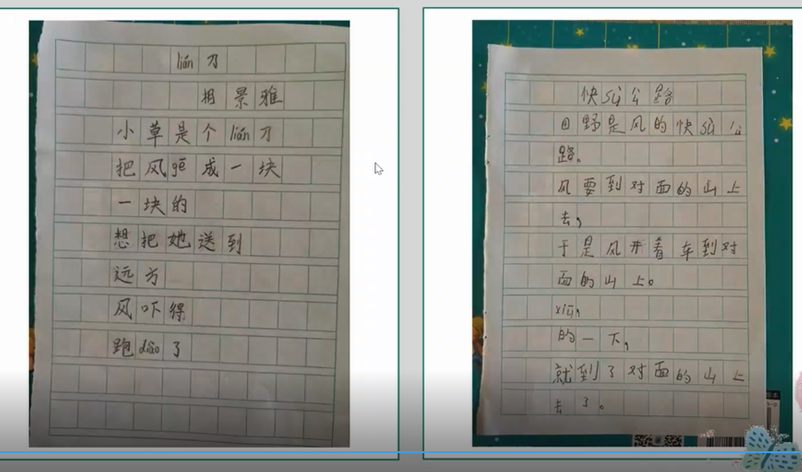 lián刀
相景雅
小草是个lián刀
把风gē成一块
一块的
想把她送到
远方
风吓得
跑diào了
快sù公路
田野是风的快sù公
路。
风要到对面的山上
去，
于是风开着车到对
面的山上。
xiū，
的一下，
就到了对面的山上
去了。